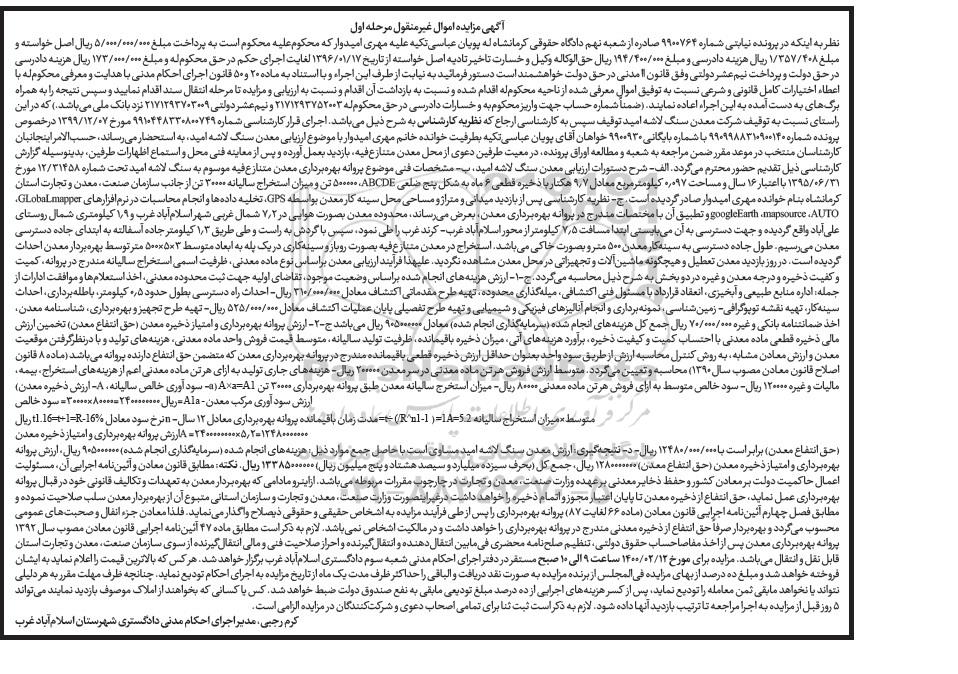 آگهی مزایده اموال غیرمنقول مرحله اول
نظر به اینکه در پرونده نیابتی شماره ۹۹۰۰۷۶۴ صادره از شعبه نهم دادگاه حقوقی کرمانشاه له پویان عباسی‌تکیه علیه مهری امیدوار که محکوم‌علیه محکوم است به پرداخت مبلغ ۵/۰۰۰/۰۰۰/۰۰۰ ریال اصل خواسته و
مبلغ ۱/۳۵۷/۴۰۸ ریال هزینه دادرسی و مبلغ ۱۹۴/۴۰۰/۰۰۰ ریال حق‌الوکاله وکیل و خسارت تاخیر تادیه اصل خواسته از تاریخ ۱۳۹۶/۰۱/۱۷ لغایت اجرای حکم در حق محکوم‌له و مبلغ ۱۷۳/۰۰۰/۰۰۰ ریال هزینه دادرسی
در حق دولت و پرداخت نیم‌عشر دولتی وفق قانون اا مدنی در حق دولت خواهشمند است دستور فرمائید به نیابت از طرف این اجراء و با استناد به ماده ۲۰ و ۵۰ قانون اجرای احکام مدنی با هدایت و معرفی محکوم‌له با
اعطاء اختیارات کامل قانونی و شرعی نسبت به توقیف اموال معرفی شده از ناحیه محکوم‌له اقدام شده و نسبت به بازداشت آن اقدام و نسبت به ارزیابی و مزایده تا مرحله انتقال سند اقدام نمایید و سپس نتیجه را به همراه
برگ‌های به دست آمده به این اجراء اعاده نمایند. (ضمناً شماره حساب جهت واریز محکوم‌به و خسارات دادرسی در حق محکوم‌له ۲۱۷۱۲۹۳۷۵۲۰۰۳ و نیم‌عشر دولتی ۲۱۷۱۲۹۳۷۰۳۰۰۹ نزد بانک ملی می‌باشد.) که در این
راستای نسبت به توقیف شرکت معدن سنگ لاشه امید توقیف سپس به کارشناسی ارجاع که نظریه کارشناس به شرح ذیل می‌باشد. اجرای قرار کارشناسی شماره ۹۹۱۰۴۴۸۳۳۰۸۰۰۷۴۹ مورخ ۱۳۹۹/۱۲/۰۷ درخصوص
پرونده شماره ۹۹۰۹۹۸۸۳۱۰۹۰۰۱۴۰ با شماره بایگانی ۹۹۰۰۹۳۰ خواهان آقای پویان عباسی‌تکیه بطرفیت خوانده خانم مهری امیدوار با موضوع ارزیابی معدن سنگ لاشه امید، به استحضار می‌رساند، حسب‌الامر اینجانبان
کارشناسان منتخب در موعد مقرر ضمن مراجعه به شعبه و مطالعه اوراق پرونده، در معیت طرفین دعوی از محل معدن متنازع‌فیه، بازدید بعمل آورده و پس از معاینه فنی محل و استماع اظهارات طرفین، بدینوسیله گزارش
کارشناسی ذیل تقدیم حضور محترم می‌گردد. الف- شرح دستورات ارزیابی معدن سنگ لاشه امید، ب- مشخصات فنی موضوع پروانه بهره‌برداری معدن متنازع‌فیه موسوم به سنگ لاشه امید تحت شماره ۱۲/۳۱۴۵۸ مورخ
۱۳۹۵/۰۶/۳۱ با اعتبار ۱۶ سال و مساحت ۰٫۰۹۷ کیلومترمربع معادل ۹٫۷ هکتار با ذخیره قطعی ۶ ماه به شکل پنج ضلعی ABCDE، ۵۰۰۰۰۰ تن و میزان استخراج سالیانه ۳۰۰۰۰ تن از جانب سازمان صنعت، معدن و تجارت استان
کرمانشاه بنام خوانده مهری امیدوار صادر گردیده است. ج- نظریه کارشناسی پس از بازدید میدانی و متراژ و مساحی محل سینه کار معدن بواسطه GPS، تخلیه داده‌ها و انجام محاسبات در نرم‌افزارهای GLobaLmapper،
googleEarth ،mapsource ،AUTO و تطبیق آن با مختصات مندرج در پروانه بهره‌برداری معدن، بعرض می‌رساند، محدوده معدن بصورت هوایی در ۷٫۲ شمال غربی شهر اسلام‌آباد غرب و ۱٫۹ کیلومتری شمال روستای
علی‌آباد واقع گردیده و جهت دسترسی به آن می‌بایستی ابتدا مسافت ۷٫۵ کیلومتر از محور اسلام‌آباد غرب- کرند غرب را طی نمود، سپس با گردش به راست و طی طریق ۱٫۳ کیلومتر جاده آسفالته به ابتدای جاده دسترسی
معدن می‌رسیم. طول جاده دسترسی به سینه‌کار معدن ۵۰۰ متر و بصورت خاکی می‌باشد. استخراج در معدن متنازع‌فیه بصورت روباز و سینه‌کاری در یک پله به ابعاد متوسط ۳×۵×۵۰۰ متر توسط بهره‌بردار معدن احداث
گردیده است. در روز بازدید معدن تعطیل و هیچگونه ماشین‌آلات و تجهیزاتی در محل معدن مشاهده نگردید. علیهذا فرآیند ارزیابی معدن براساس نوع ماده معدنی، ظرفیت اسمی استخراج سالیانه مندرج در پروانه، کمیت
و کیفیت ذخیره و درجه معدن و غیره در دو بخش به شرح ذیل محاسبه می‌گردد. ج-۱- ارزش هزینه‌های انجام شده براساس وضعیت موجود، تقاضای اولیه جهت ثبت محدوده معدنی، اخذ استعلام‌ها و موافقت ادارات از
جمله: اداره منابع طبیعی و آبخیزی، انعقاد قرارداد با مسئول فنی اکتشافی، میله‌گذاری محدوده، تهیه طرح مقدماتی اکتشاف معادل ۳۱۰/۰۰۰/۰۰۰ ریال- احداث راه دسترسی بطول حدود ۰٫۵ کیلومتر، باطله‌برداری، احداث
سینه‌کار، تهیه نقشه توپوگرافی- زمین‌شناسی، نمونه‌برداری و انجام آنالیزهای فیزیکی و شیمیایی و تهیه طرح تفصیلی پایان عملیات اکتشاف معادل ۵۲۵/۰۰۰/۰۰۰ ریال- تهیه طرح تجهیز و بهره‌برداری، شناسنامه معدن،
اخذ ضمانتنامه بانکی و غیره ۷۰/۰۰۰/۰۰۰ ریال جمع کل هزینه‌های انجام شده (سرمایه‌گذاری انجام شده) معادل ۹۰۵۰۰۰۰۰۰ ریال می‌باشد ج-۲- ارزش پروانه بهره‌برداری و امتیاز ذخیره معدن (حق انتفاع معدن) تخمین ارزش
مالی ذخیره قطعی ماده معدنی با احتساب کمیت و کیفیت ذخیره، برآورد هزینه‌های آتی، میزان ذخیره باقیمانده، ظرفیت تولید سالیانه، متوسط قیمت فروش واحد ماده معدنی، هزینه‌های تولید و با درنظرگرفتن موقعیت
معدن و ارزش معادن مشابه، به روش کنترل محاسبه ارزش از طریق سود واحد بعنوان حداقل ارزش ذخیره قطعی باقیمانده مندرج در پروانه بهره‌برداری معدن که متضمن حق انتفاع دارنده پروانه می‌باشد (ماده ۸ قانون
اصلاح قانون معادن مصوب سال ۱۳۹۰) محاسبه و تعیین می‌گردد. متوسط ارزش فروش هر تن ماده معدنی در سر معدن ۲۰۰۰۰۰ ریال- هزینه‌های جاری تولید به ازای هر تن ماده معدنی اعم از هزینه‌های استخراج، بیمه،
مالیات و غیره ۱۲۰۰۰۰ ریال- سود خالص متوسط به ازای فروش هر تن ماده معدنی ۸۰۰۰۰ ریال- میزان استخرج سالیانه معدن طبق پروانه بهره‌برداری ۳۰۰۰۰ تن A×a=A1 (a- سود آوری خالص سالیانه، A- ارزش ذخیره معدن)
ارزش سود آوری مرکب معدن - A1a=ریال ۲۴۰۰۰۰۰۰۰۰=۳۰۰۰۰×۸۰۰۰۰= سود خالص
متوسط×میزان استخراج سالیانه t=- ((R^n1-1 )=1A=5.2=مدت زمان باقیمانده پروانه بهره‌برداری معادل ۱۲ سال- n=نرخ سود معادل t1.16=t+1=R-16% ریال
ارزش پروانه بهره‌برداری و امتیاز ذخیره معدن A =۲۴۰۰۰۰۰۰۰۰×۵٫۲=۱۲۴۸۰۰۰۰۰۰۰
(حق انتفاع معدن) برابر است با ۱۲۴۸۰/۰۰۰/۰۰۰ ریال- د- نتیجه‌گیری: ارزش معدن سنگ لاشه امید مساوی است با حاصل جمع موارد ذیل: هزینه‌های انجام شده (سرمایه‌گذاری انجام شده) ۹۰۵۰۰۰۰۰۰ ریال، ارزش پروانه
بهره‌برداری و امتیاز ذخیره معدن (حق انتفاع معدن) ۱۲۸۰۰۰۰۰۰۰ ریال، جمع کل (بحرف سیزده میلیارد و سیصد هشتاد و پنج میلیون ریال) ۱۳۳۸۵۰۰۰۰۰۰ ریال. نکته: مطابق قانون معادن و آئین‌نامه اجرایی آن، مسئولیت
اعمال حاکمیت دولت بر معادن کشور و حفظ ذخایر معدنی بر عهده وزارت صنعت، معدن و تجارت در چارچوب مقررات مربوطه می‌باشد. ازاینرو مادامی که بهره‌بردار معدن به تعهدات و تکالیف قانونی خود در قبال پروانه
بهره‌برداری عمل نماید، حق انتفاع از ذخیره معدن تا پایان اعتبار مجوز و اتمام ذخیره را خواهد داشت درغیراینصورت وزارت صنعت، معدن و تجارت و سازمان استانی متبوع آن از بهره‌بردار معدن سلب صلاحیت نموده و
مطابق فصل چهارم آئین‌نامه اجرایی قانون معادن (ماده ۶۶ لغایت ۸۷) پروانه بهره‌برداری را پس از طی فرآیند مزایده به اشخاص حقیقی و حقوقی ذیصلاح واگذار می‌نماید. فلذا معادن جزء انفال و صحبت‌های عمومی
محسوب می‌گردد و بهره‌بردار صرفاً حق انتفاع از ذخیره معدنی مندرج در پروانه بهره‌برداری را خواهد داشت و در مالکیت اشخاص نمی‌باشد. لازم به ذکر است مطابق ماده ۴۷ آئین‌نامه اجرایی قانون معادن مصوب سال ۱۳۹۲
پروانه بهره‌برداری معدن پس از اخذ مفاصاحساب حقوق دولتی، تنظیم صلح‌نامه محضری فی‌مابین انتقال‌دهنده و انتقال‌گیرنده و احراز صلاحیت فنی و مالی انتقال‌گیرنده از سوی سازمان صنعت، معدن و تجارت استان
قابل نقل و انتقال می‌باشد. مزایده برای مورخ ۱۴۰۰/۰۲/۱۲ ساعت ۹ الی ۱۰ صبح مستقر در دفتر اجرای احکام مدنی شعبه سوم دادگستری اسلام‌آباد غرب برگزار خواهد شد. هر کس که بالاترین قیمت را اعلام نماید به ایشان
فروخته خواهد شد و مبلغ ده درصد از بهای مزایده فی‌المجلس از برنده مزایده به صورت نقد دریافت و الباقی را حداکثر ظرف مدت یک ماه از تاریخ مزایده به اجرای احکام تودیع نماید. چنانچه ظرف مهلت مقرر به هر دلیلی
نتواند یا نخواهد مابقی ثمن معامله را تودیع نماید، پس از کسر هزینه‌های اجرایی از ده درصد مبلغ تودیعی مابقی به نفع صندوق دولت ضبط خواهد شد. کس یا کسانی که بخواهند از املاک موصوف بازدید نمایند می‌تواند
۵ روز قبل از مزایده به اجرا مراجعه تا ترتیب بازدید آنها داده شود. لازم به ذکر است ثبت ثنا برای تمامی اصحاب دعوی و شرکت‌کنندگان در مزایده الزامی است.
کرم رجبی، مدیر اجرای احکام مدنی دادگستری شهرستان اسلام‌آباد غرب